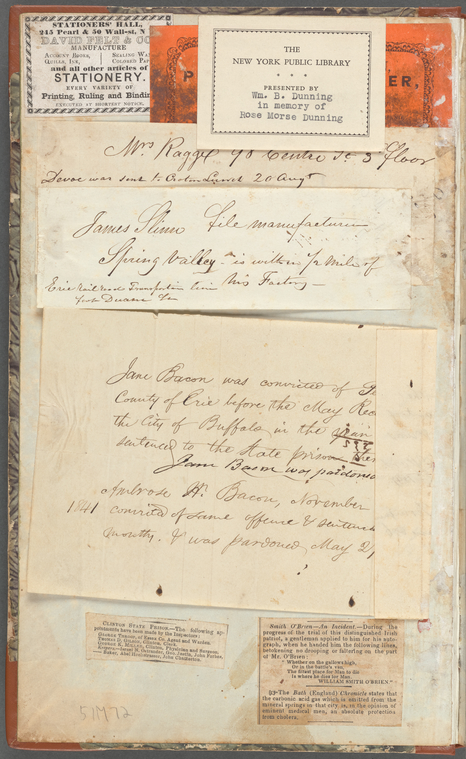 STATIONERS' HALL,
245 Pearl & 50 Wall-st, N
DAVID FELT & CO
MANUFACTURE
Account Books,
Quills, Ink,
Sealing Wa
Colored Pap
and all other articles of
STATIONERY.
EVERY VARIETY OF
Printing, Ruling and Bindin
EXECUTED AT SHORTEST NOTICE.
P
ER,
THE
NEW YORK PUBLIC LIBRARY
PRESENTED BY
Wm. B. Dunning
in memory of
Rose Morse Dunning
Mrs 90 Centre St 3d floor
Devoe was sent to 20 Augt
James file manufacturer
Spring Valley is within 1/2 Mile of
his Factory
Erie rail road Transportation line
foot Duane
Jane Bacon was convicted of
County of Erie before the May Rec
the City of Buffalo in the year
sentenced to the State prison
Jane Bacon was pardoned
Ambrose W. Bacon, November
1841 convicted of same offence & sentenc
months. & was pardoned May 2
Clinton State Prison.—The following ap-
pointments have been made by the Inspectors:
Keepers—
Smith O'Brien—An Incident.—During the
progress of the trial of this distinguished Irish
patriot, a gentleman applied to him for his auto-
graph, when he handed him the following lines,
betokening no drooping or faltering on the part
of Mr. O'Brien:
"Whether on the gallows high,
Or in the battle's van,
The fittest place for Man to die
Is where he dies for Man.
WILLIAM SMITH O'BRIEN."
The Bath (England) Chronicle states that
the carbonic acid gas which is emitted from the
mineral springs in that city is, in the opinion of
eminent medical men, an absolute protection
from cholera.